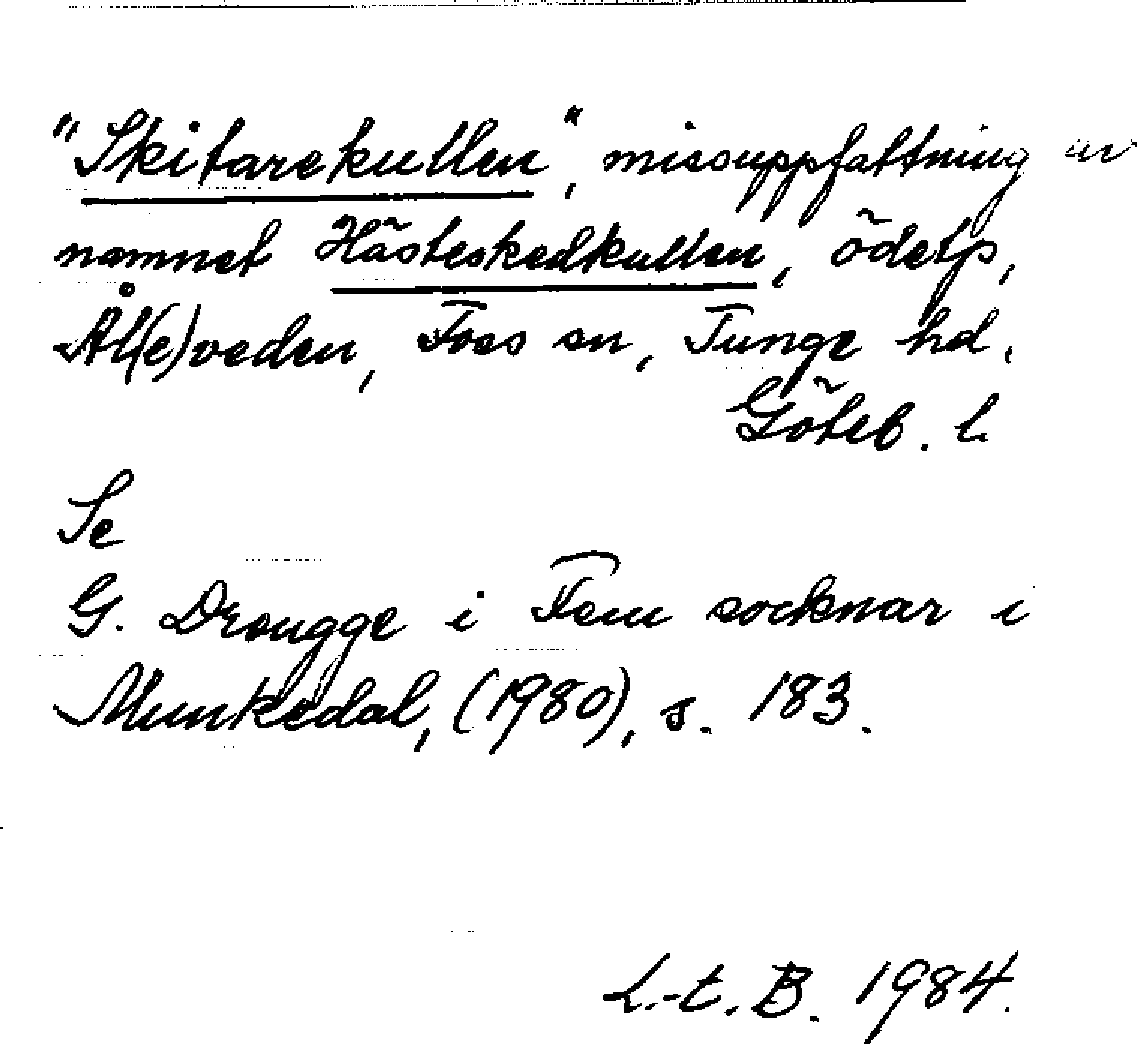 "Skitarekullen", missuppfattning av
namnet Hästeskedkullen, ödetp,
Ål(e)veden, Foss sn, Tunge hd,
Göteb. l.
Se
G. Drougge i Fem socknar i
Munkedal, (1980), s. 183.
L.-t. B. 1984.